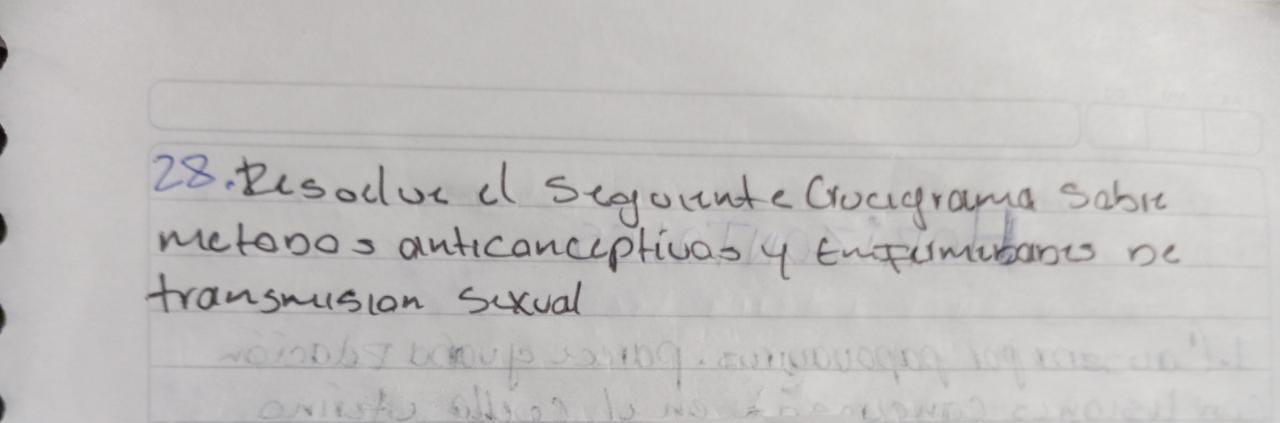 28. Resoelve el Segouente Crucigrama Sobre
metodos anticonceptivos y Enfermedades De
transmision Sexual